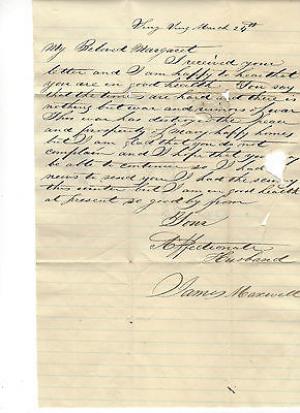 March 24th
My Beloved Margaret
I received your
letter and I am happy to hear that
you are in good health You say
that the times are hard and there is
nothing but war and
This war has destroyed the peace
and prosperity of many happy homes
but I am glad that you do not
complain and I hope that you may
be able to I had
news to send you I had the
this winter but I am in good health
at present so good by from
Your
Affectionate
Husband
James Maxwell